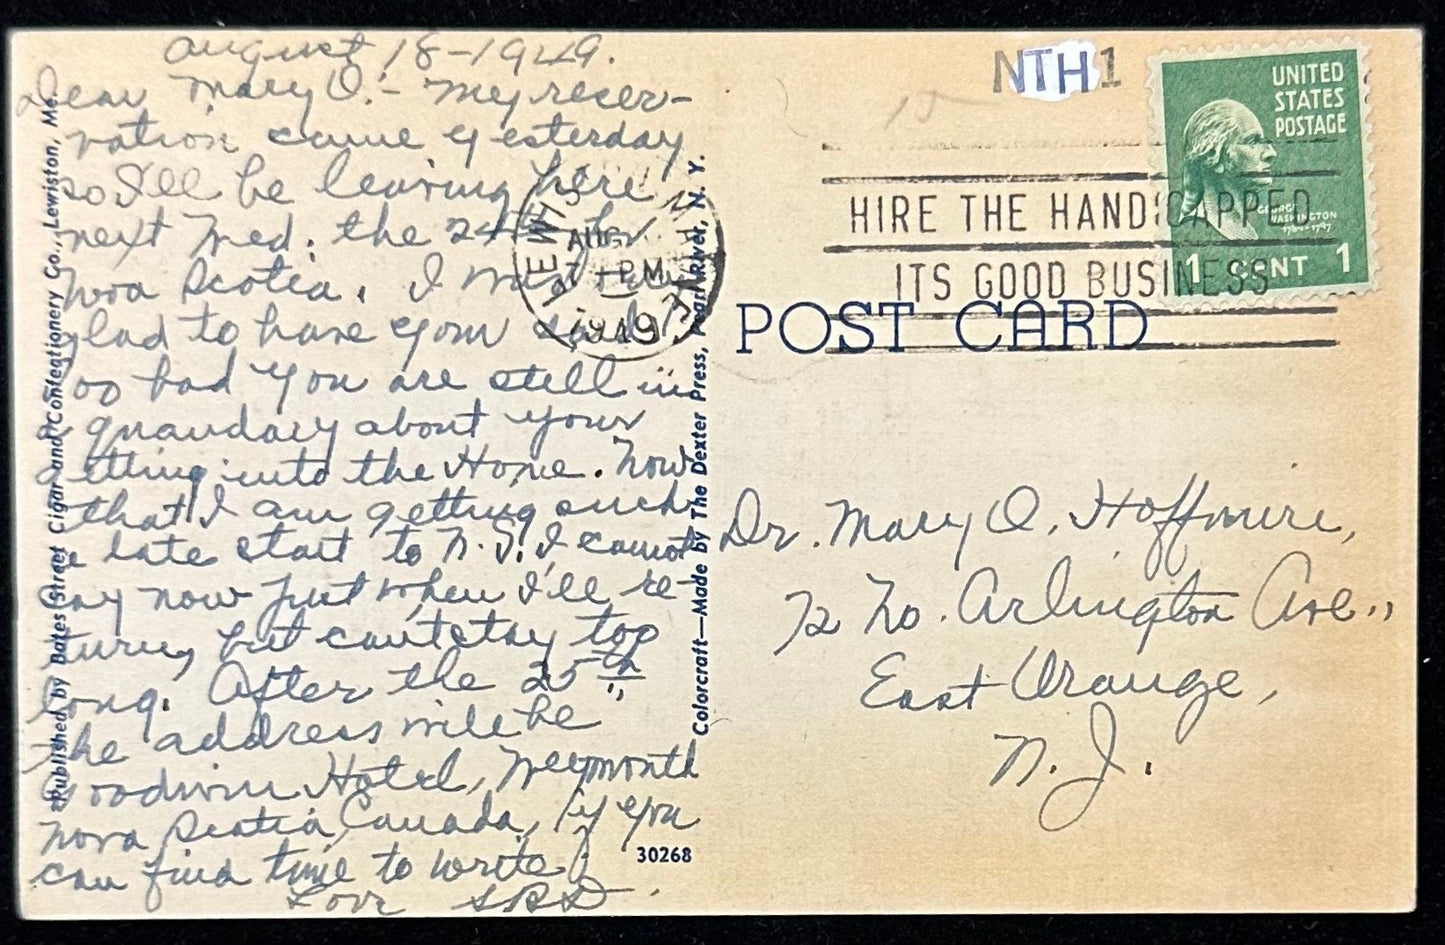 August 18-1949.
Dear Mary O.- My reser-
vation came yesterday
so I'll be leaving here
next Wed. the 24th for
Nova Scotia. I was
glad to have your card.
Too bad you are still in
a quandary about your
getting into the Home. Now
that I am getting such
a late start to N.S. I cannot
say now just when I'll re-
turn, but can't stay too
long. After the 25th
the address will be
Goodwin Hotel, Weymouth
Nova Scotia, Canada, if you
can find time to write.
Love SBD.
Published by Bates Street Cigar and Confectionery Co., Lewiston, Me.
Colorcraft—Made by The Dexter Press, Pearl River, N. Y.
30268
NTH1
15
LEWISTON MAINE
AUG
7 - PM
1949
HIRE THE HANDICAPPED
ITS GOOD BUSINESS
UNITED
STATES
POSTAGE
GEORGE
WASHINGTON
1789-1797
1 CENT 1
POST CARD
Dr. Mary O. Hoffmire,
72 No. Arlington Ave.,
East Orange,
N. J.